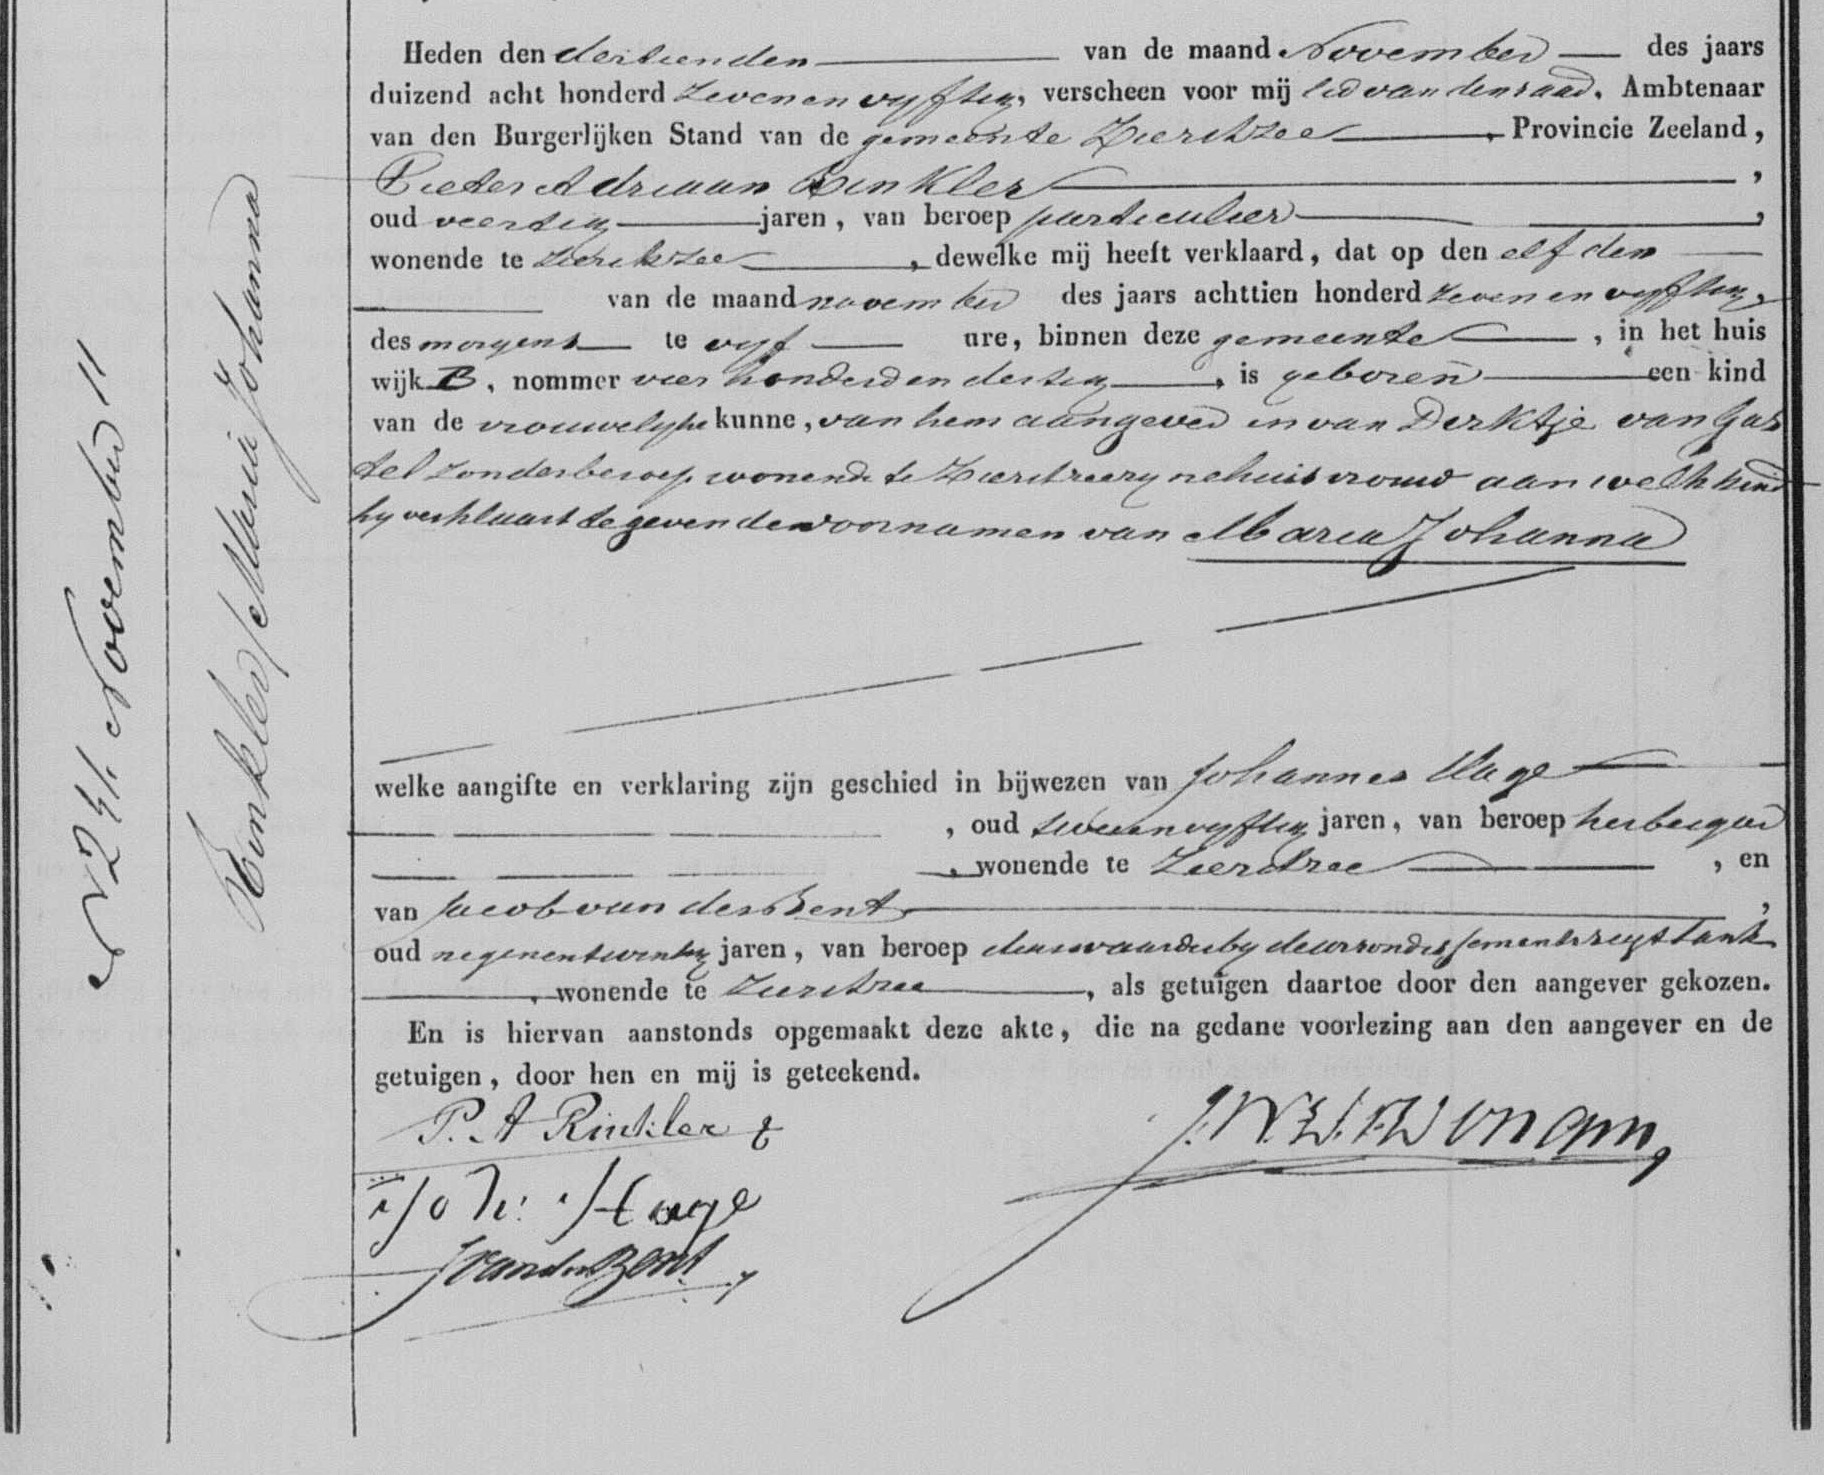 N 241. November 11
Rinkler, Maria Johanna
Heden den dertienden van de maand November des jaars
duizend acht honderd zevenenvyftig, verscheen voor mij lid van den raad, Ambtenaar
van den Burgerlijken Stand van de gemeente Zierikzee, Provincie Zeeland,
Pieter Adriaan Rinkler,
oud veertig jaren, van beroep particulier,
wonende te Zierikzee, dewelke mij heeft verklaard, dat op den elfden
van de maand november des jaars achttien honderd zevenenvyftig,
des morgens te vyf ure, binnen deze gemeente, in het huis
wijk B, nommer vier honderd en dertig, is geboren een kind
van de vrouwelyke kunne, van hem aangever en van Derktje van Gas
tel zonder beroep wonende te Zierikzee zyne huisvrouw aan welk kind
hy verklaart te geven de voornamen van Maria Johanna
welke aangifte en verklaring zijn geschied in bijwezen van Johannes Hage
, oud tweeenvyftig jaren, van beroep herbergier
, wonende te Zierikzee, en
van Jacob van der Bent,
oud negenentwintig jaren, van beroep deurwaarder by de arrondissements regtbank
, wonende te Zierikzee, als getuigen daartoe door den aangever gekozen.
En is hiervan aanstonds opgemaakt deze akte, die na gedane voorlezing aan den aangever en de
getuigen, door hen en mij is geteekend.
P. A Rinkler
Joh: Hage
J van der Bent